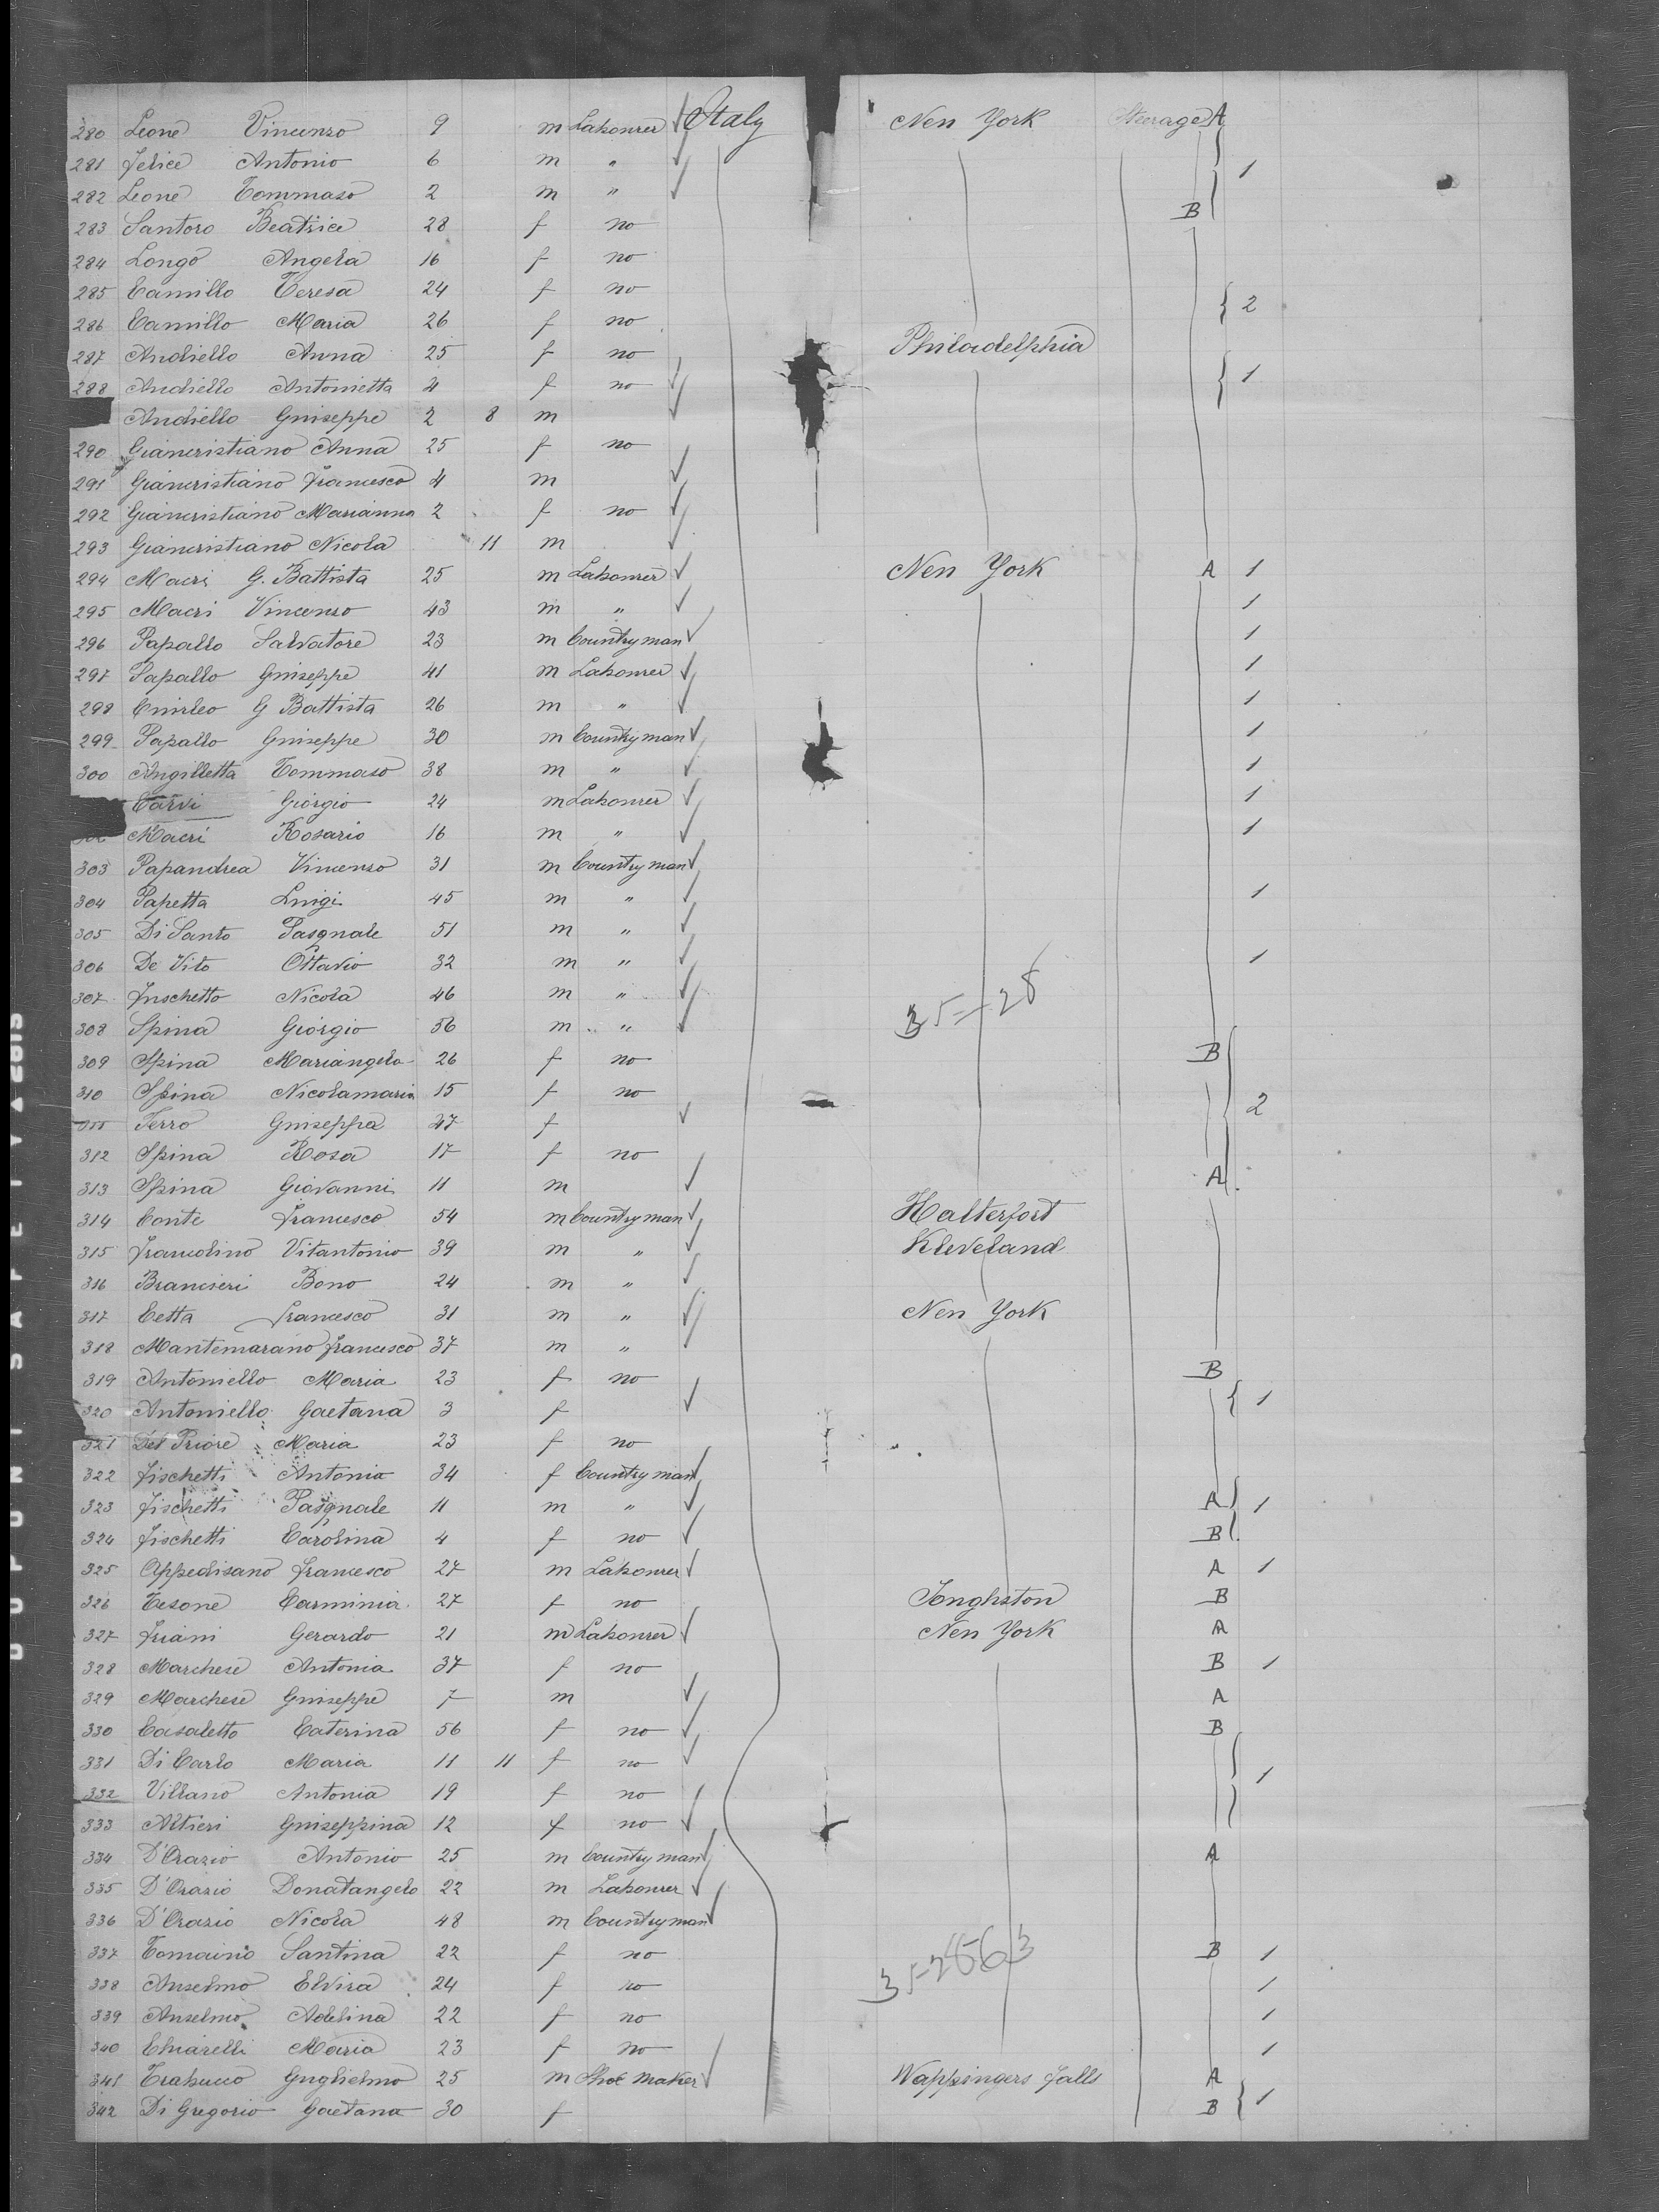 280 Leone Vincenzo 9 m Labourer Italy New York Steerage A
281 Felice Antonio 6 m " 1
282 Leone Tommaso 2 m "
283 Santoro Beatrice 28 f no B
284 Longo Angela 16 f no
285 Camillo Teresa 24 f no 2
286 Camillo Maria 26 f no
287 Andiello Anna 25 f no Philadelphia
288 Andiello Antonietta 4 f no 1
Andiello Giuseppe 2 8 m
290 Giancristiano Anna 25 f no
291 Giancristiano Francesco 4 m
292 Giancristiano Marianna 2 f no
293 Giancristiano Nicola 11 m
294 Macri G. Battista 25 m Labourer New York A 1
295 Macri Vincenzo 43 m " 1
296 Papallo Salvatore 23 m Countryman 1
297 Papallo Giuseppe 41 m Labourer 1
298 G Battista 26 m " 1
299 Papallo Giuseppe 30 m Countryman 1
300 Angilletta Tommaso 38 m " 1
Carvi Giorgio 24 m Labourer 1
302 Macri Rosario 16 m " 1
303 Papandrea Vincenzo 31 m Countryman
304 Papetta Luigi 45 m " 1
305 Di Santo Pasquale 51 m "
306 De Vito Ottavio 32 m " 1
307 Fuschetto Nicola 46 m " 35-28
308 Spina Giorgio 56 m "
309 Spina Mariangela 26 f no B
310 Spina Nicolamaria 15 f no
Ferro Giuseppa 47 f 2
312 Spina Rosa 17 f no
313 Spina Giovanni 11 m A
314 Conte Francesco 54 m Countryman Halterfort
315 Francolino Vitantonio 39 m " Kleveland
316 Brancieri Bono 24 m "
317 Cetta Francesco 31 m " New York
318 Mantemarano Francesco 37 m "
319 Antoniello Maria 23 f no B
320 Antoniello Gaetana 3 f 1
321 Del Priore Maria 23 f no
322 Fischetti Antonia 34 f Countryman
323 Fischetti Pasquale 11 m " A 1
324 Fischetti Carolina 4 f no B
325 Appedisano Francesco 27 m Labourer A 1
326 Tesone Carminia 27 f no B
327 Friani Gerardo 21 m Labourer New York A
328 Marchese Antonia 37 f no B 1
329 Marchese Giuseppe 7 m A
330 Casaletto Caterina 56 f no B
331 Di Carlo Maria 11 11 f no
332 Villano Antonia 19 f no 1
333 Altieri Giuseppina 12 f no
334 D'Orazio Antonio 25 m Countryman A
335 D'Orazio Donatangelo 22 m Labourer
336 D'Orazio Nicola 48 m Countryman
337 Tomaino Santina 22 f no B 1
338 Anselmo Elvira 24 f no 1
339 Anselmo Adelina 22 f no 1
340 Chiarelli Maria 23 f no 1
341 Trabucco Guglielmo 25 m Shoe maker Wappingers Falls A
342 Di Gregorio Gaetana 30 f B 1